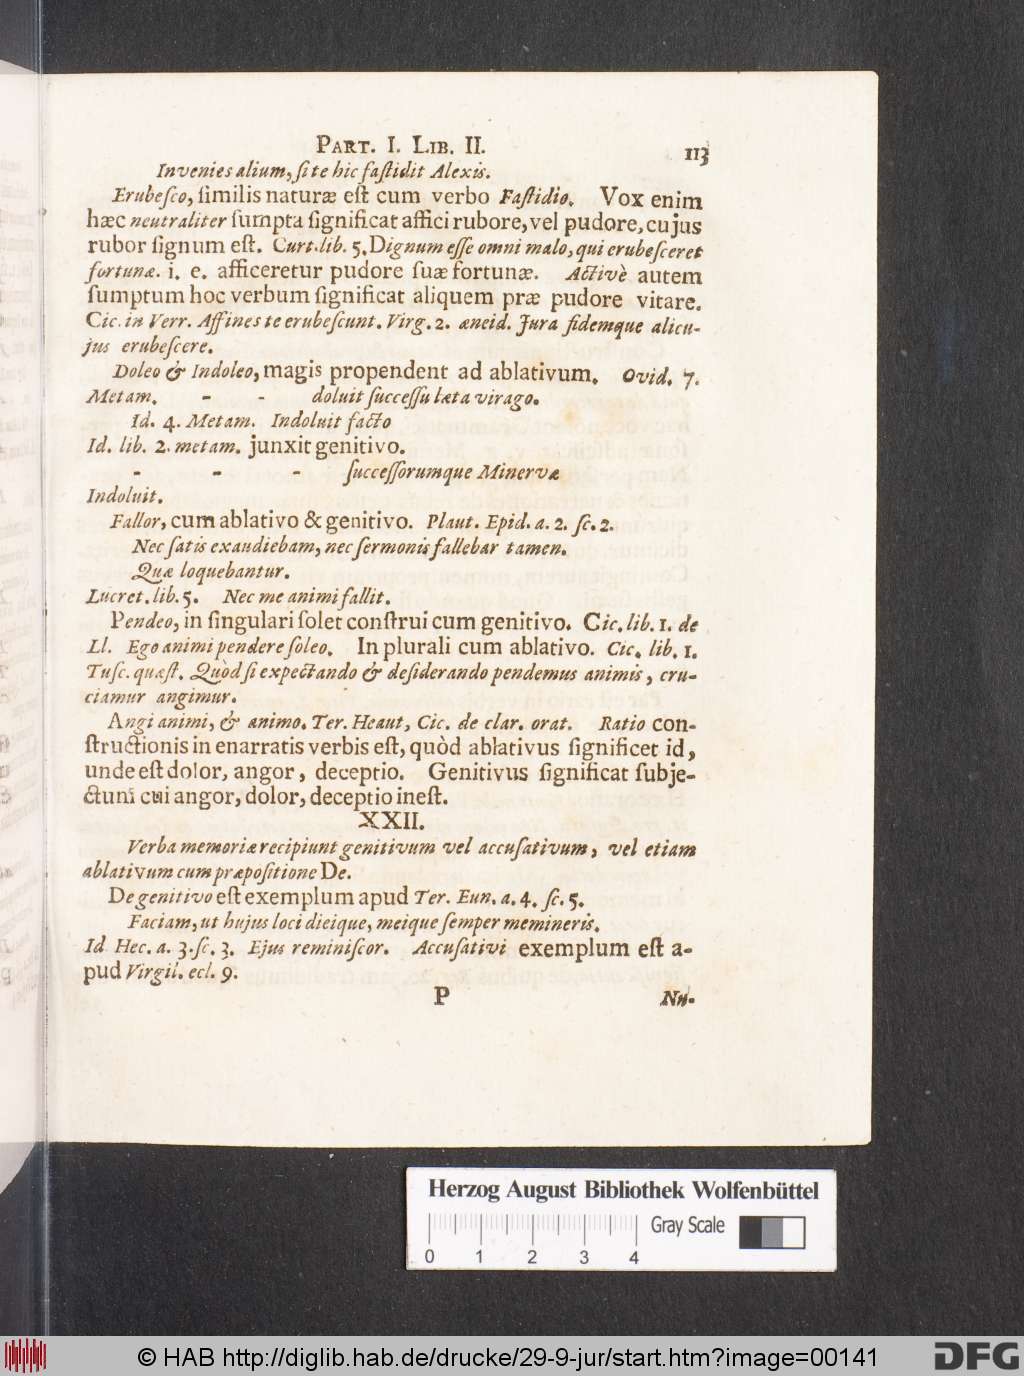 PART. I. LIB. II. 113
Invenies alium, ſi te hic faſtidit Alexis.
Erubeſco, ſimilis naturæ eſt cum verbo Faſtidio. Vox enim
hæc neutraliter ſumpta ſignificat affici rubore, vel pudore, cujus
rubor ſignum eſt. Curt. lib. 5. Dignum eſſe omni malo, qui erubeſceret
fortunæ. i. e. afficeretur pudore ſuæ fortunæ. Activè autem
ſumptum hoc verbum ſignificat aliquem præ pudore vitare.
Cic. in Verr. Affines te erubeſcunt. Virg. 2. æneid. Jura fidemque alicu-
jus erubeſcere.
Doleo & Indoleo, magis propendent ad ablativum. Ovid. 7.
Metam. - - doluit ſucceſſu læta virago.
Id. 4. Metam. Indoluit facto
Id. lib. 2. metam. junxit genitivo.
- - - ſucceſſorumque Minervæ
Indoluit.
Fallor, cum ablativo & genitivo. Plaut. Epid. a. 2. ſc. 2.
Nec ſatis exaudiebam, nec ſermonis fallebar tamen.
Quæ loquebantur.
Lucret. lib. 5. Nec me animi fallit.
Pendeo, in ſingulari ſolet conſtrui cum genitivo. Cic. lib. 1. de
Ll. Ego animi pendere ſoleo. In plurali cum ablativo. Cic. lib. 1.
Tuſc. quæſt. Quòd ſi expectando & deſiderando pendemus animis, cru-
ciamur angimur.
Angi animi, & animo. Ter. Heaut, Cic. de clar. orat. Ratio con-
ſtructionis in enarratis verbis eſt, quòd ablativus ſignificet id,
unde eſt dolor, angor, deceptio. Genitivus ſignificat ſubje-
ctum cui angor, dolor, deceptio ineſt.
XXII.
Verba memoriæ recipiunt genitivum vel accuſativum, vel etiam
ablativum cum præpoſitione De.
De genitivo eſt exemplum apud Ter. Eun. a. 4. ſc. 5.
Faciam, ut hujus loci dieique, meique ſemper memineris.
Id Hec. a. 3. ſc. 3. Ejus reminiſcor. Accuſativi exemplum eſt a-
pud Virgil. ecl. 9.
P Nu-
Herzog August Bibliothek Wolfenbüttel
Gray Scale
0 1 2 3 4
© HAB http://diglib.hab.de/drucke/29-9-jur/start.htm?image=00141
DFG